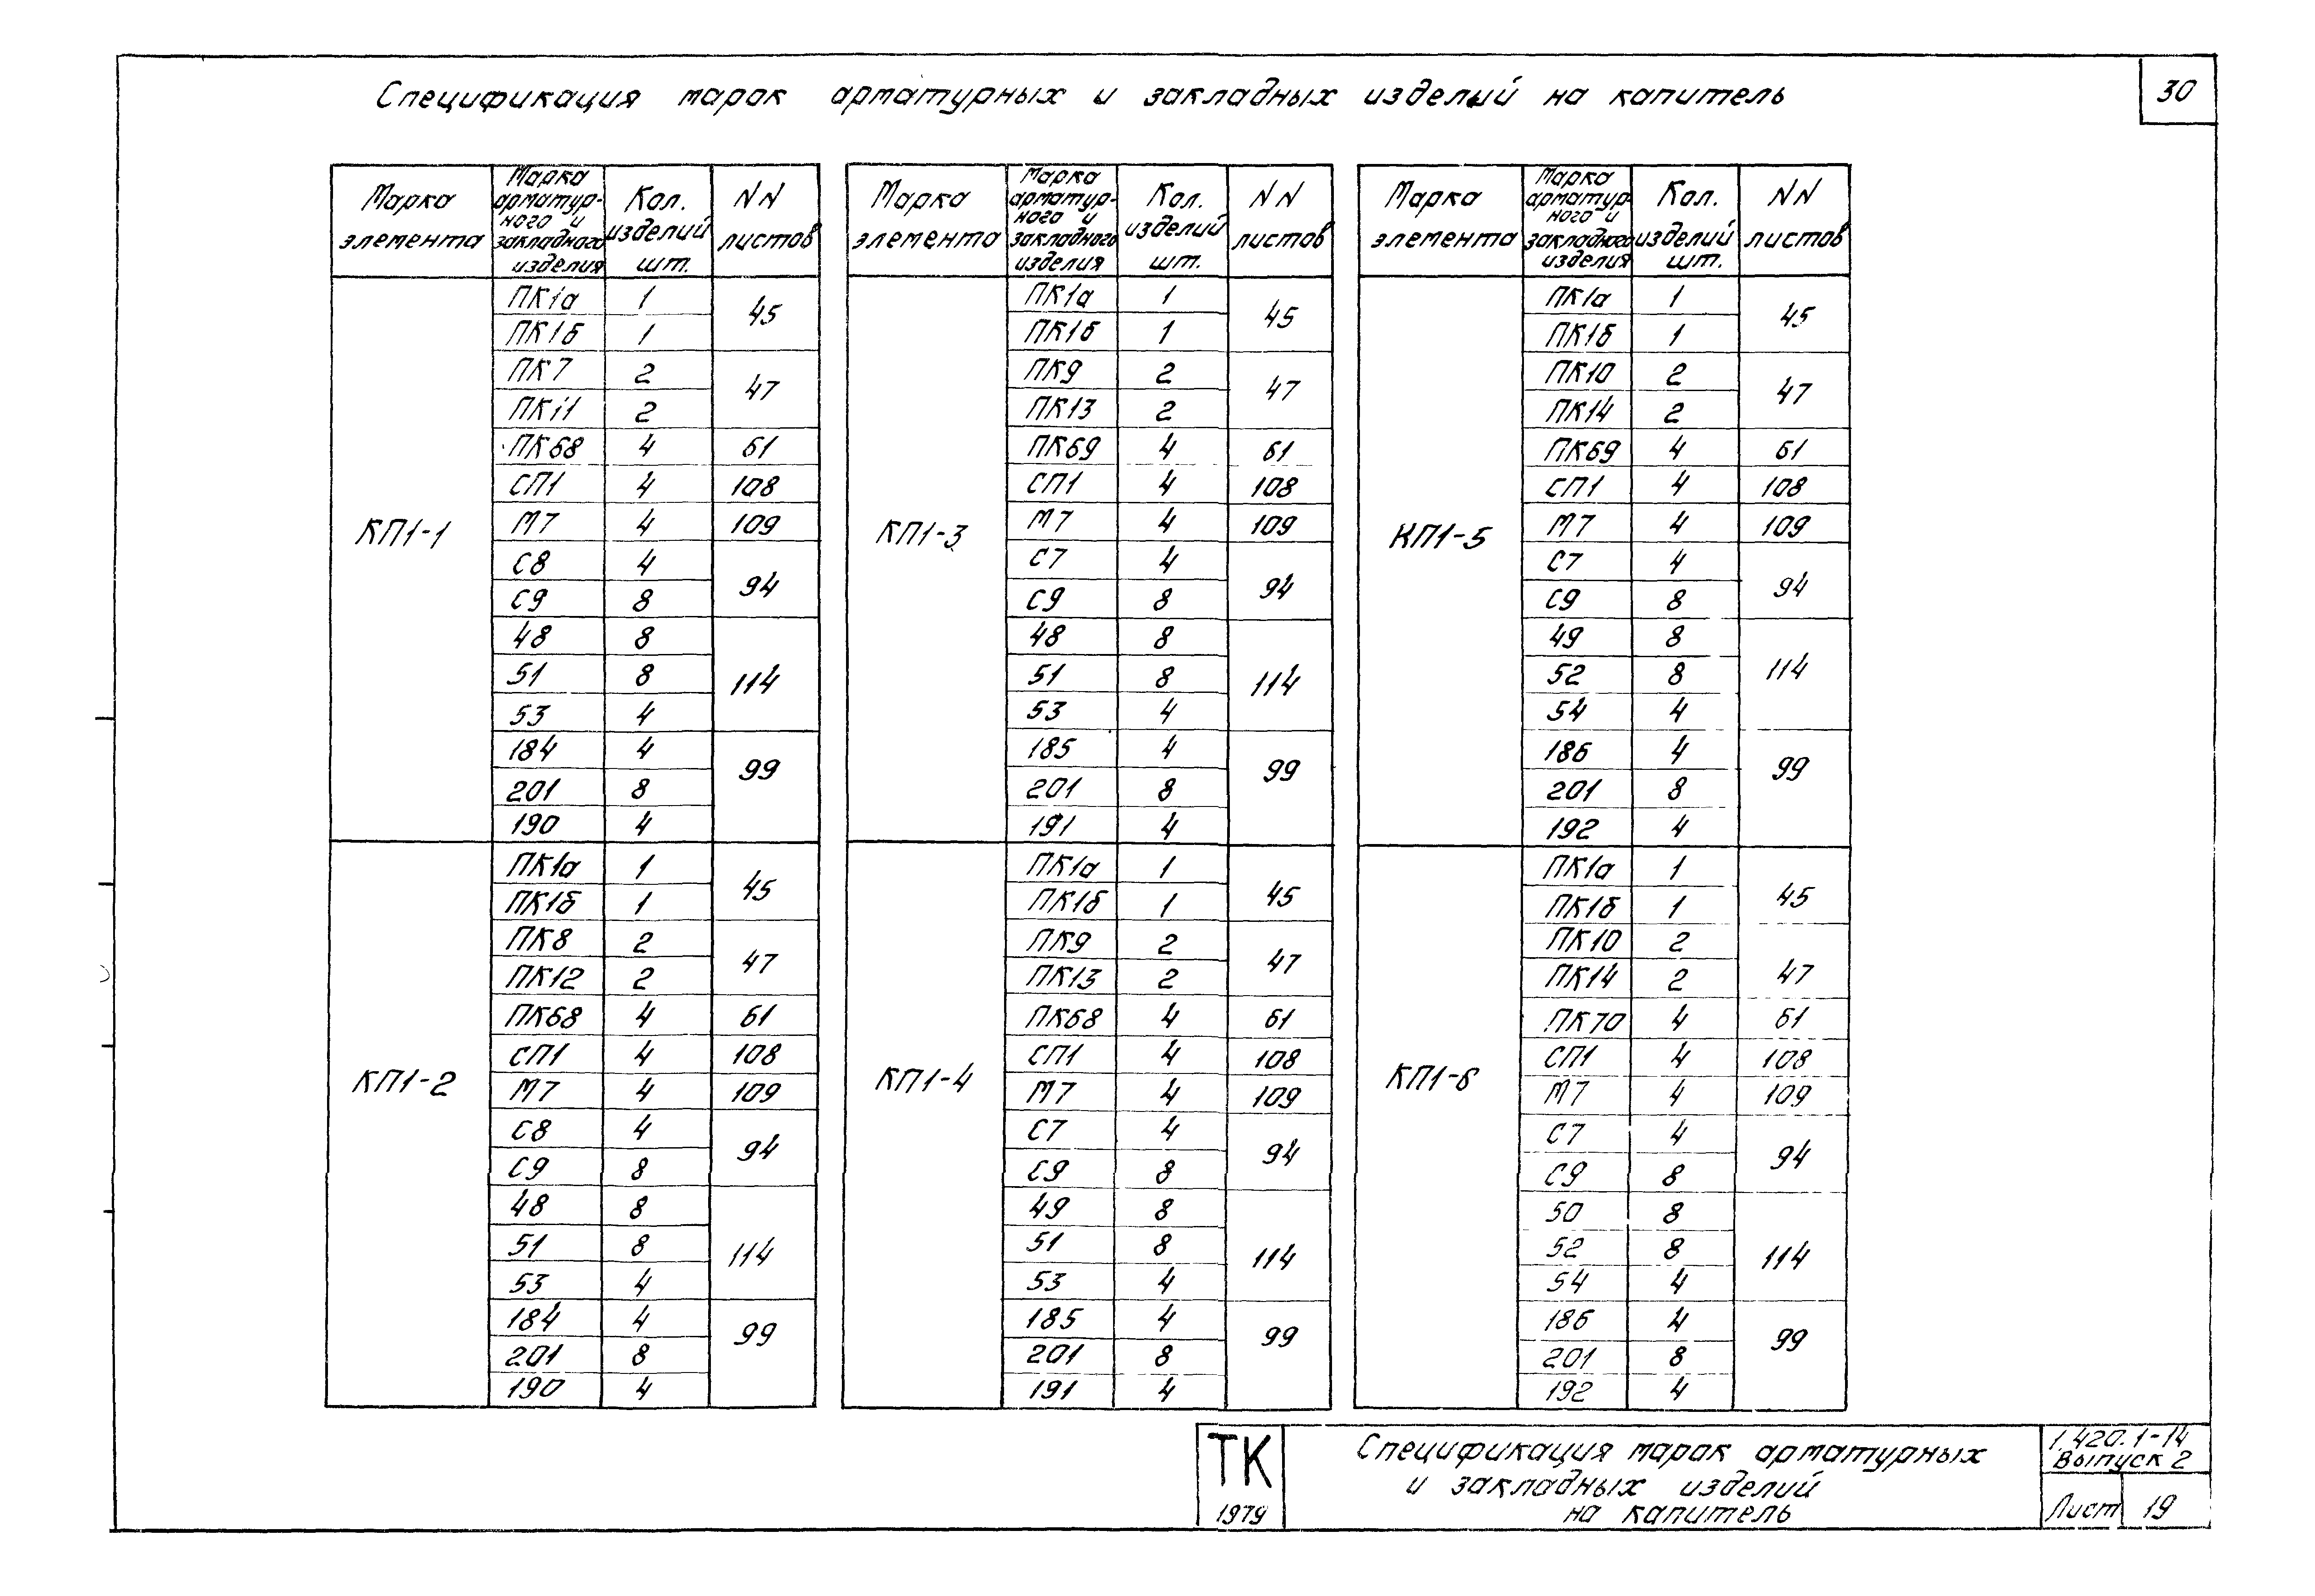 Спецификация марок арматурных и закладных изделий на капитель
30
Марка элемента | Марка арматурного и закладного изделия | Кол. изделий шт. | NN листов
КП1-1
ПК1а 1 45
ПК1б 1
ПК7 2 47
ПК11 2
ПК68 4 61
СП1 4 108
М7 4 109
С8 4 94
С9 8
48 8 114
51 8
53 4
184 4 99
201 8
190 4
КП1-2
ПК1а 1 45
ПК1б 1
ПК8 2 47
ПК12 2
ПК68 4 61
СП1 4 108
М7 4 109
С8 4 94
С9 8
48 8 114
51 8
53 4
184 4 99
201 8
190 4
Марка элемента | Марка арматурного и закладного изделия | Кол. изделий шт. | NN листов
КП1-3
ПК1а 1 45
ПК1б 1
ПК9 2 47
ПК13 2
ПК69 4 61
СП1 4 108
М7 4 109
С7 4 94
С9 8
48 8 114
51 8
53 4
185 4 99
201 8
191 4
КП1-4
ПК1а 1 45
ПК1б 1
ПК9 2 47
ПК13 2
ПК68 4 61
СП1 4 108
М7 4 109
С7 4 94
С9 8
49 8 114
51 8
53 4
185 4 99
201 8
191 4
Марка элемента | Марка арматурного и закладного изделия | Кол. изделий шт. | NN листов
КП1-5
ПК1а 1 45
ПК1б 1
ПК10 2 47
ПК14 2
ПК69 4 61
СП1 4 108
М7 4 109
С7 4 94
С9 8
49 8 114
52 8
54 4
186 4 99
201 8
192 4
КП1-6
ПК1а 1 45
ПК1б 1
ПК10 2 47
ПК14 2
ПК70 4 61
СП1 4 108
М7 4 109
С7 4 94
С9 8
50 8 114
52 8
54 4
186 4 99
201 8
192 4
ТК
1979
Спецификация марок арматурных
и закладных изделий
на капитель
1.420.1-14
Выпуск 2
Лист 19